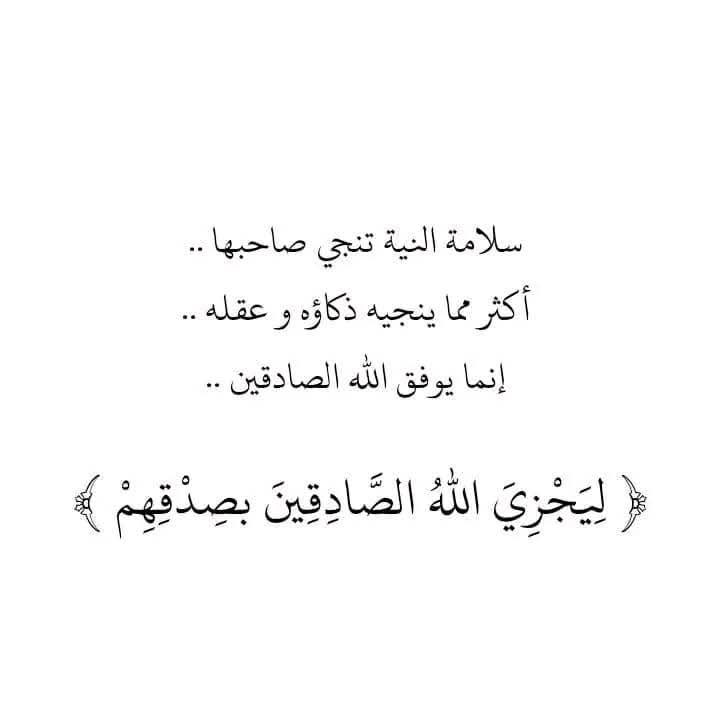 سلامة النية تنجي صاحبها ..
أكثر مما ينجيه ذكاؤه و عقله ..
إنما يوفق الله الصادقين ..
﴿ لِيَجْزِيَ اللهُ الصَّادِقِينَ بصِدْقِهِمْ ﴾